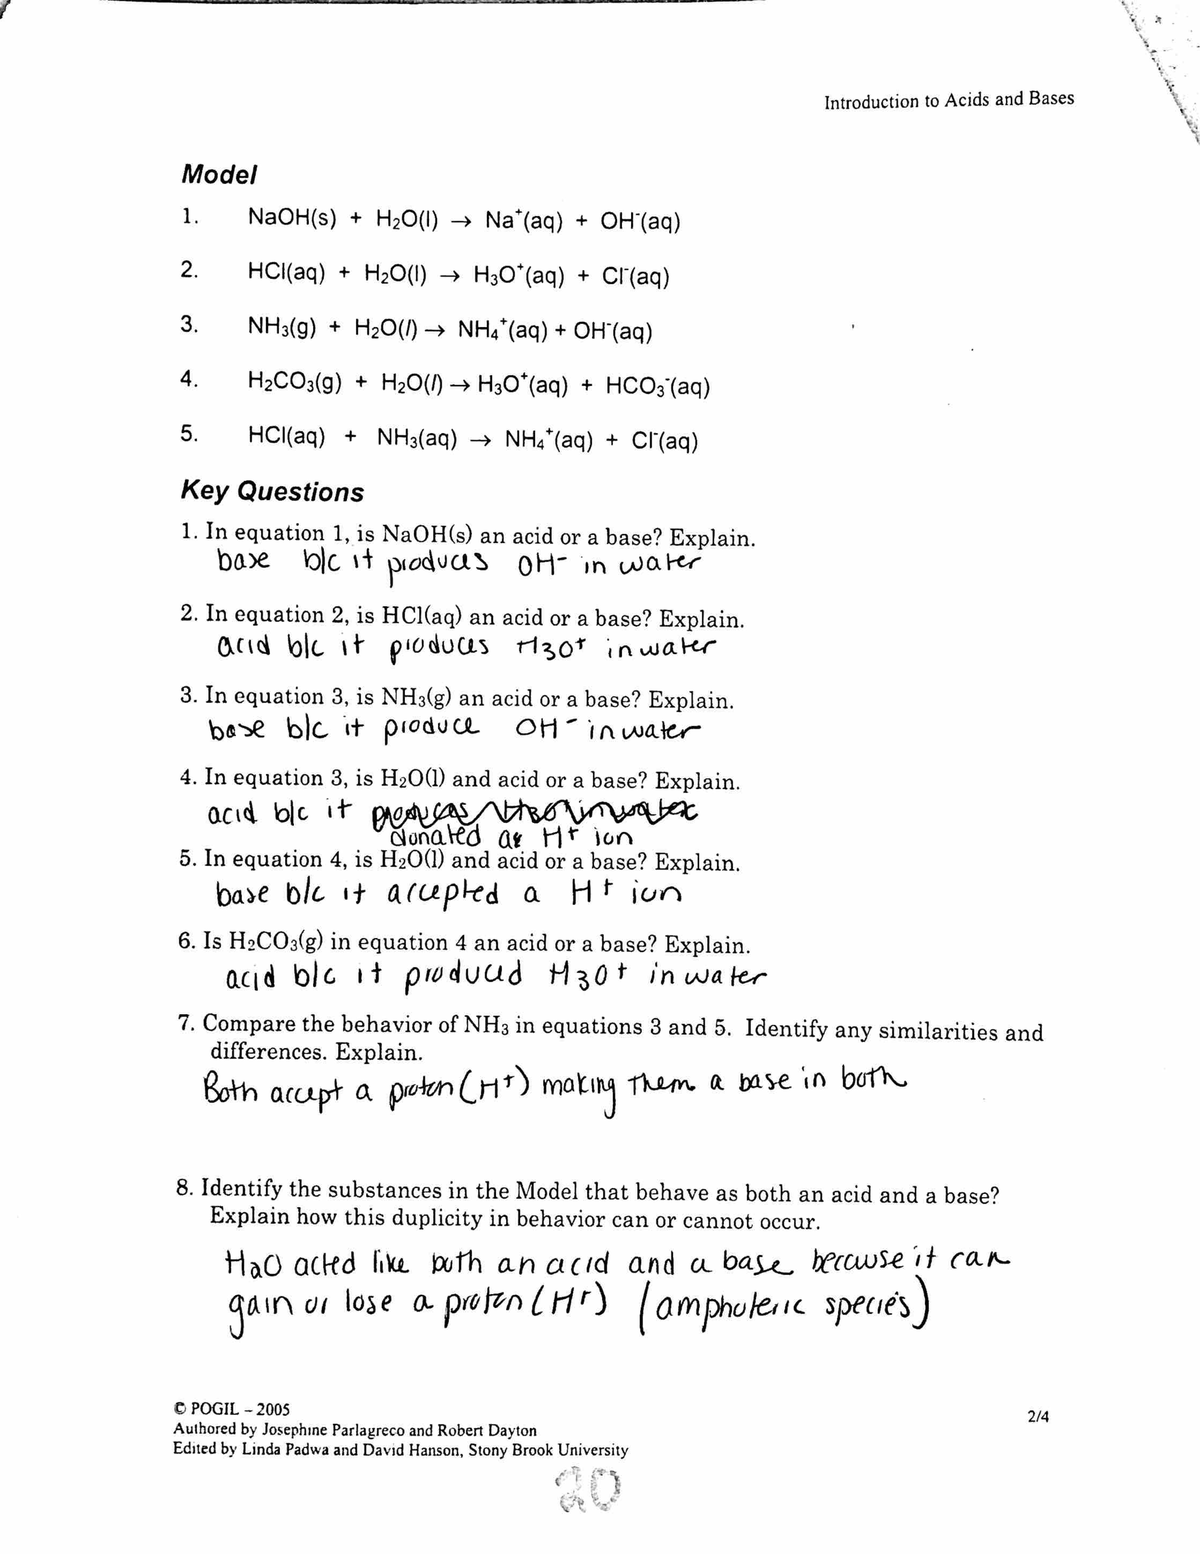 Introduction to Acids and Bases
Model
1. NaOH(s) + H₂O(l) → Na⁺(aq) + OH⁻(aq)
2. HCl(aq) + H₂O(l) → H₃O⁺(aq) + Cl⁻(aq)
3. NH₃(g) + H₂O(l) → NH₄⁺(aq) + OH⁻(aq)
4. H₂CO₃(g) + H₂O(l) → H₃O⁺(aq) + HCO₃⁻(aq)
5. HCl(aq) + NH₃(aq) → NH₄⁺(aq) + Cl⁻(aq)
Key Questions
1. In equation 1, is NaOH(s) an acid or a base? Explain.
base b/c it produces OH⁻ in water
2. In equation 2, is HCl(aq) an acid or a base? Explain.
acid b/c it produces H3O⁺ in water
3. In equation 3, is NH₃(g) an acid or a base? Explain.
base b/c it produce OH⁻ in water
4. In equation 3, is H₂O(l) and acid or a base? Explain.
acid b/c it
donated a H⁺ ion
5. In equation 4, is H₂O(l) and acid or a base? Explain.
base b/c it accepted a H⁺ ion
6. Is H₂CO₃(g) in equation 4 an acid or a base? Explain.
acid b/c it produced H3O⁺ in water
7. Compare the behavior of NH₃ in equations 3 and 5. Identify any similarities and
differences. Explain.
Both accept a proton (H⁺) making them a base in both
8. Identify the substances in the Model that behave as both an acid and a base?
Explain how this duplicity in behavior can or cannot occur.
H2O acted like both an acid and a base because it can
gain or lose a proton (H⁺) (amphoteric species)
© POGIL – 2005
2/4
Authored by Josephine Parlagreco and Robert Dayton
Edited by Linda Padwa and David Hanson, Stony Brook University
20